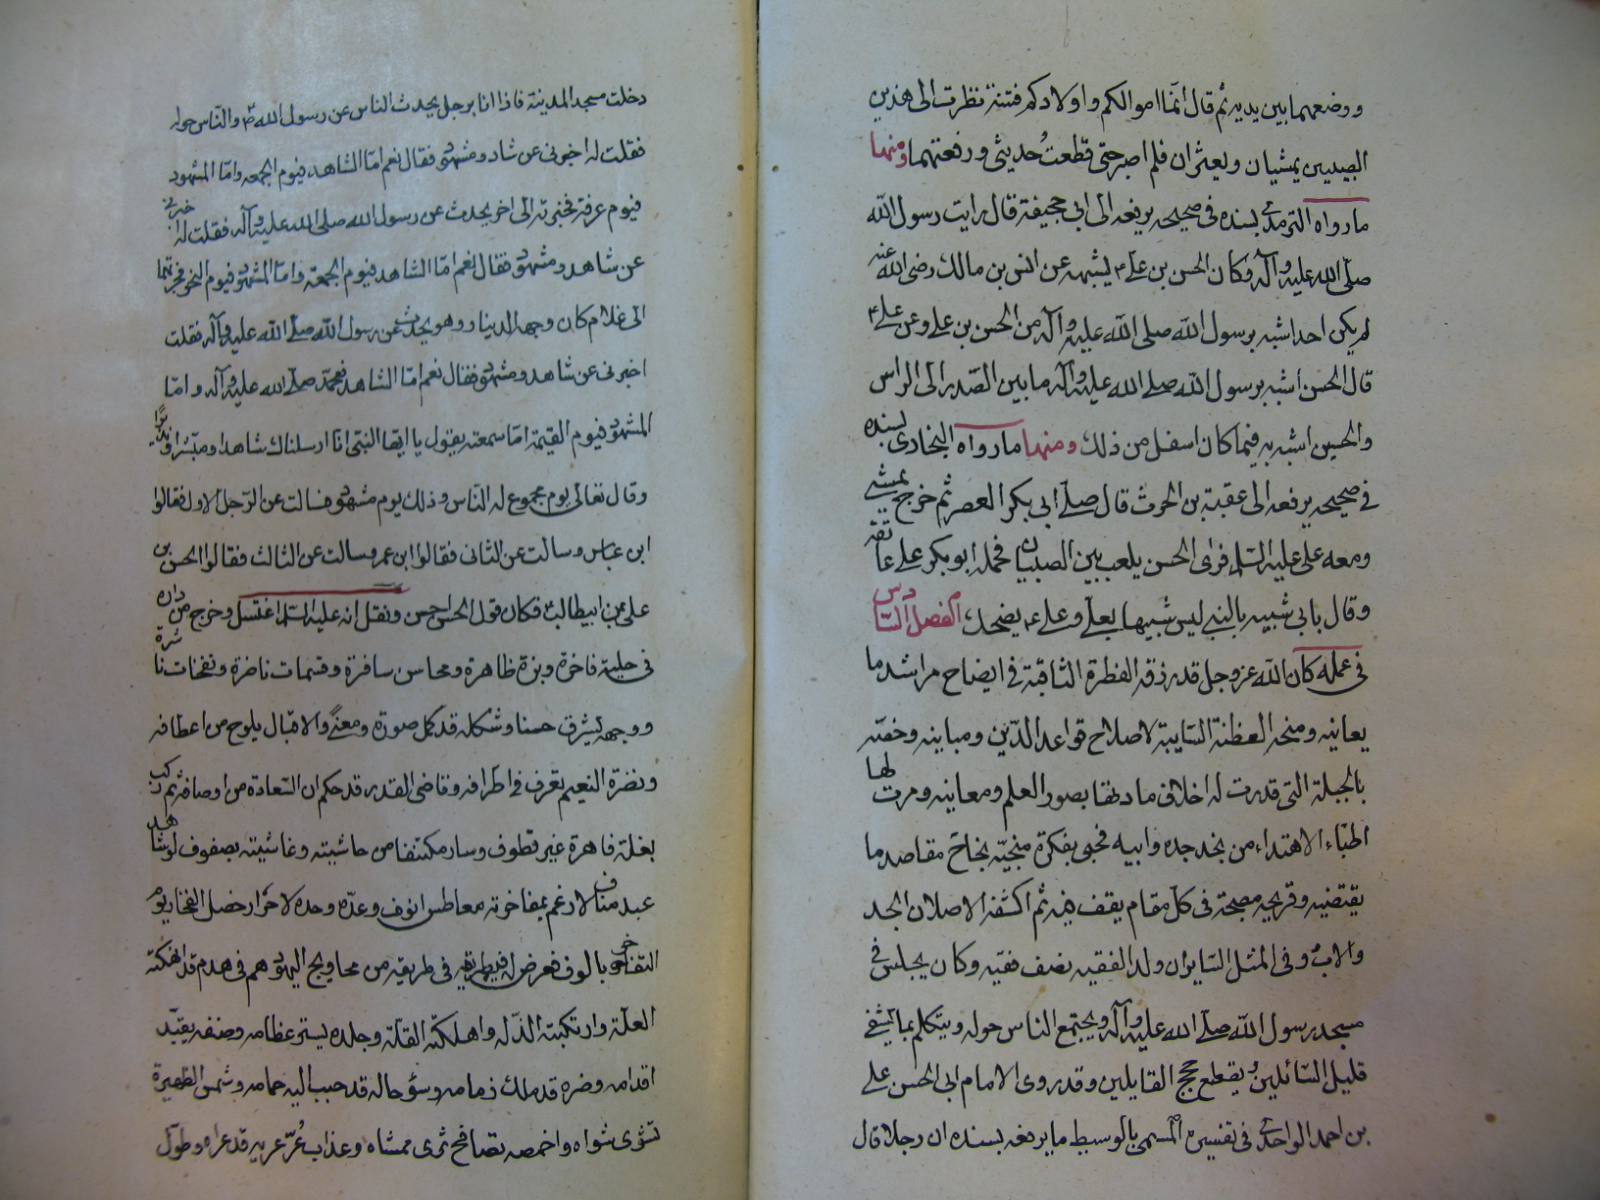 ووضعهما بين يديه ثم قال انما اموالكم واولادكم فتنة نظرت الى هذين
الصبيين يمشيان ويعثران فلم اصبر حتى قطعت حديثى ورفعتهما ومنها
ما رواه الترمذي بسنده فى صحيحه يرفعه الى ابى جحيفة قال رايت رسول الله
صلى الله عليه وآله وكان الحسن بن على ع يشبهه عن انس بن مالك رضى الله عنه
لم يكن احد اشبه برسول الله صلى الله عليه وآله من الحسن بن على وعن على ع
قال الحسن اشبه برسول الله صلى الله عليه وآله ما بين الصدر الى الراس
والحسين اشبه به فيما كان اسفل من ذلك ومنها ما رواه البخارى بسنده
فى صحيحه يرفعه الى عقبة بن الحرث قال صلى ابى بكر العصر ثم خرج يمشى
ومعه على عليه السلم فراى الحسن يلعب بين الصبيان فحمله ابو بكر على عاتقه
وقال بابى شبيه بالنبى ليس شبيها بعلى وعلى ع يضحك الفصل السادس
فى علمه كان الله عز وجل قد رزقه الفطرة الثاقبة فى ايضاح مراشد ما
يعانيه ومنحه الفطنة الصايبة لاصلاح قواعد الدين ومبانيه وخصه
بالجبلة التى قدرت لها اخلاف مادتها بصور العلم ومعانيه ومرت له
اطباء الاهتداء من نجد جده وابيه فجبى بفكرة منجبة نجاح مقاصد ما
يقتضيه وقريحة مصحة فى كل مقام يقف فيه ثم اكتنفه الاصلان الجد
والاب وفى المثل الساير ان ولد الفقيه نصف فقيه وكان يجلس فى
مسجد رسول الله صلى الله عليه وآله ويجتمع الناس حوله ويتكلم بما يشفى
غليل السائلين ويقطع حجج القايلين وقد روى الامام ابى الحسن على
بن احمد الواحدى فى تفسيره المسمى بالوسيط ما يرفعه بسنده ان رجلا قال
دخلت مسجد المدينة فاذا انا برجل يحدث الناس عن رسول الله ص والناس حوله
فقلت له اخبرنى عن شاهد ومشهود فقال نعم اما الشاهد فيوم الجمعه واما المشهود
فيوم عرفة فجزته الى اخر يحدث عن رسول الله صلى الله عليه وآله فقلت له اخبرنى
عن شاهد ومشهود فقال نعم اما الشاهد فيوم الجمعة واما المشهود فيوم النحر فجزتهما
الى غلام كان وجهه الدينار وهو يحدث عن رسول الله صلى الله عليه وآله فقلت
اخبرنى عن شاهد ومشهود فقال نعم اما الشاهد فمحمد صلى الله عليه وآله واما
المشهود فيوم القيمة اما سمعته يقول يا ايها النبى انا ارسلناك شاهدا ومبشرا ونذيرا
وقال تعالى يوم مجموع له الناس وذلك يوم مشهود فسالت عن الرجل الاول فقالوا
ابن عباس وسالت عن الثانى فقالوا ابن عمر وسالت عن الثالث فقالوا الحسن بن
على بن ابيطالب ع فكان قول الحسن احسن ونقل انه عليه السلم اغتسل وخرج من داره
فى حلية فاخرة وبزة ظاهرة ومحاسن سافرة وقسمات ناضرة ونفحات ناشرة
ووجهه يشرق حسنا وشكله قد كمل صورة ومعنى والاقبال يلوح من اعطافه
ونضرة النعيم تعرف فى اطرافه وقاضى القدر قد حكم ان السعادة من اوصافه ثم ركب
بغلة فاهرة غير قطوف وسار مكتنفا من حاشيته وغاشيته بصفوف لو شاهد
عبد مناف لارغم بمفاخرته معاطس انوف وعده وحده لاحراز خصل الفخار يوم
التفاخر بالوف فعرض له فى طريقه من محاويج اليهود هم فى هدم قد انهكته
العلة وارتكبته الذله واهلكته القلة وجلده يستر عظامه وضعفه يقيد
اقدامه وضره قد ملك زمامه وسؤ حاله قد حبب اليه حمامه وشمس الظهيرة
تشوى شواه واخمصه تصافح ثرى ممشاه وعذاب عر عريه قد عراه وطول